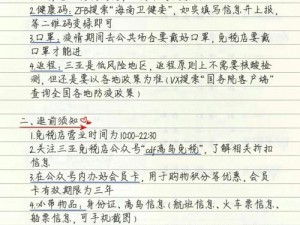 2.健康码: ZFB搜索"海南卫健委",如实填写信息开上报,
等二维码变绿即可
3.口罩: 疫情期间去公共场合要戴好口罩,免税店要戴
口罩才能进
4.返程: 三亚是低风险地区,返程原则上不需要核酸检
测,但还是要以各地政策为准(VX搜索"国务院客户端"
查询全国各地防疫政策)
二、逛前须知
1.免税店营业时间为10:00-22:30
2.关注三亚免税店公众号"cdf离岛免税",了解相关折扣
信息
3.在公众号内办好会员卡,用于购物积分等优惠,会员
卡有效期限为三年
4.小带物品: 身份证、离岛信息(航班信息、火车票信息、
船票信息,可手机截图)